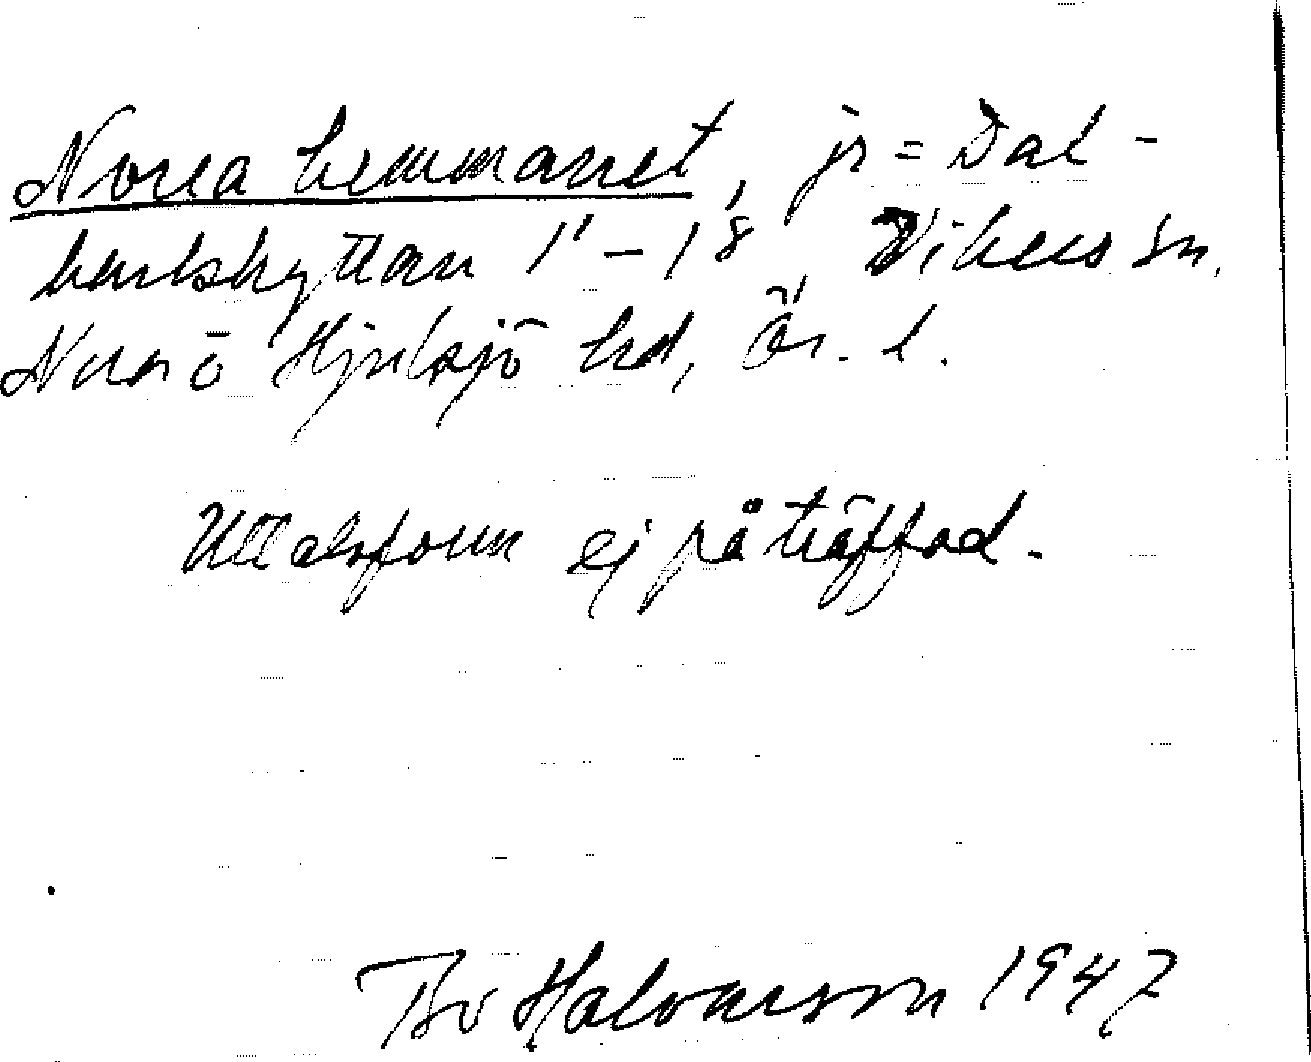 Norra hemmanet, jr = Dal-
karlshyttan 1¹ - 1⁸, Vikers sn,
Nora ö Hjulsjö hd, Ör. l.
Uttalsform ej påträffad.
Bo Halvarsson 1947